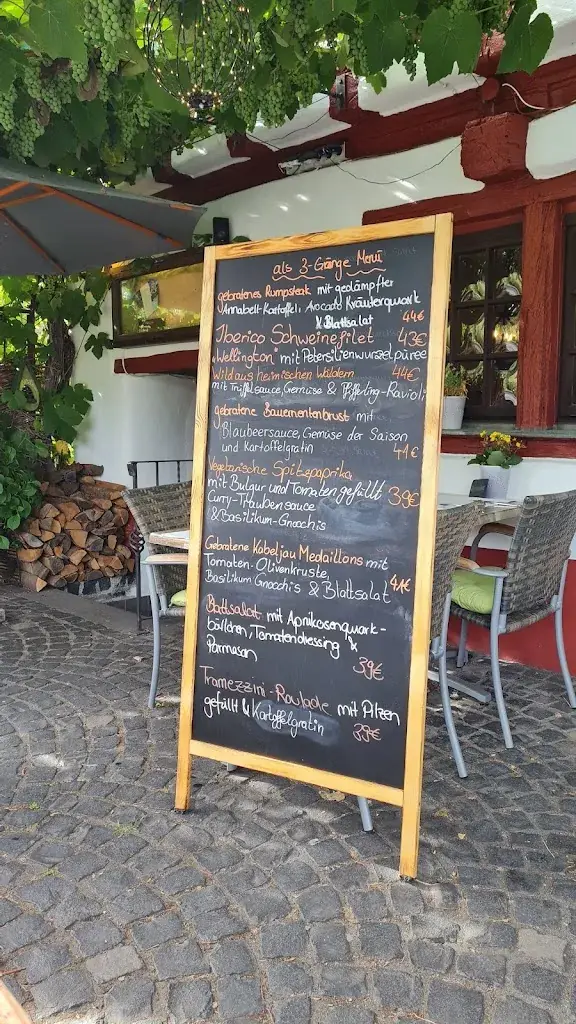 als 3-Gänge Menü
gebratenes Rumpsteak mit gedämpfter
Annabell-Kartoffel, Avocado Kräuterquark
& Blattsalat 44€
Iberico Schweinefilet 43€
"Wellington" mit Petersilienwurzelpüree
Wild aus heimischen Wäldern 44€
mit Trüffelsauce, Gemüse & Pfifferling-Ravioli
gebratene Bauernentenbrust mit
Blaubeersauce, Gemüse der Saison
und Kartoffelgratin 41€
Vegetarische Spitzpaprika
mit Bulgur und Tomaten gefüllt 39€
Curry-Traubensauce
& Basilikum-Gnocchis
Gebratene Kabeljau Medaillons mit
Tomaten-Olivenkruste,
Basilikum Gnocchis & Blattsalat 41€
Blattsalat mit Aprikosenquark-
bällchen, Tomatendressing &
Parmesan 39€
Tramezzini-Roulade mit Pilzen
gefüllt & Kartoffelgratin 39€